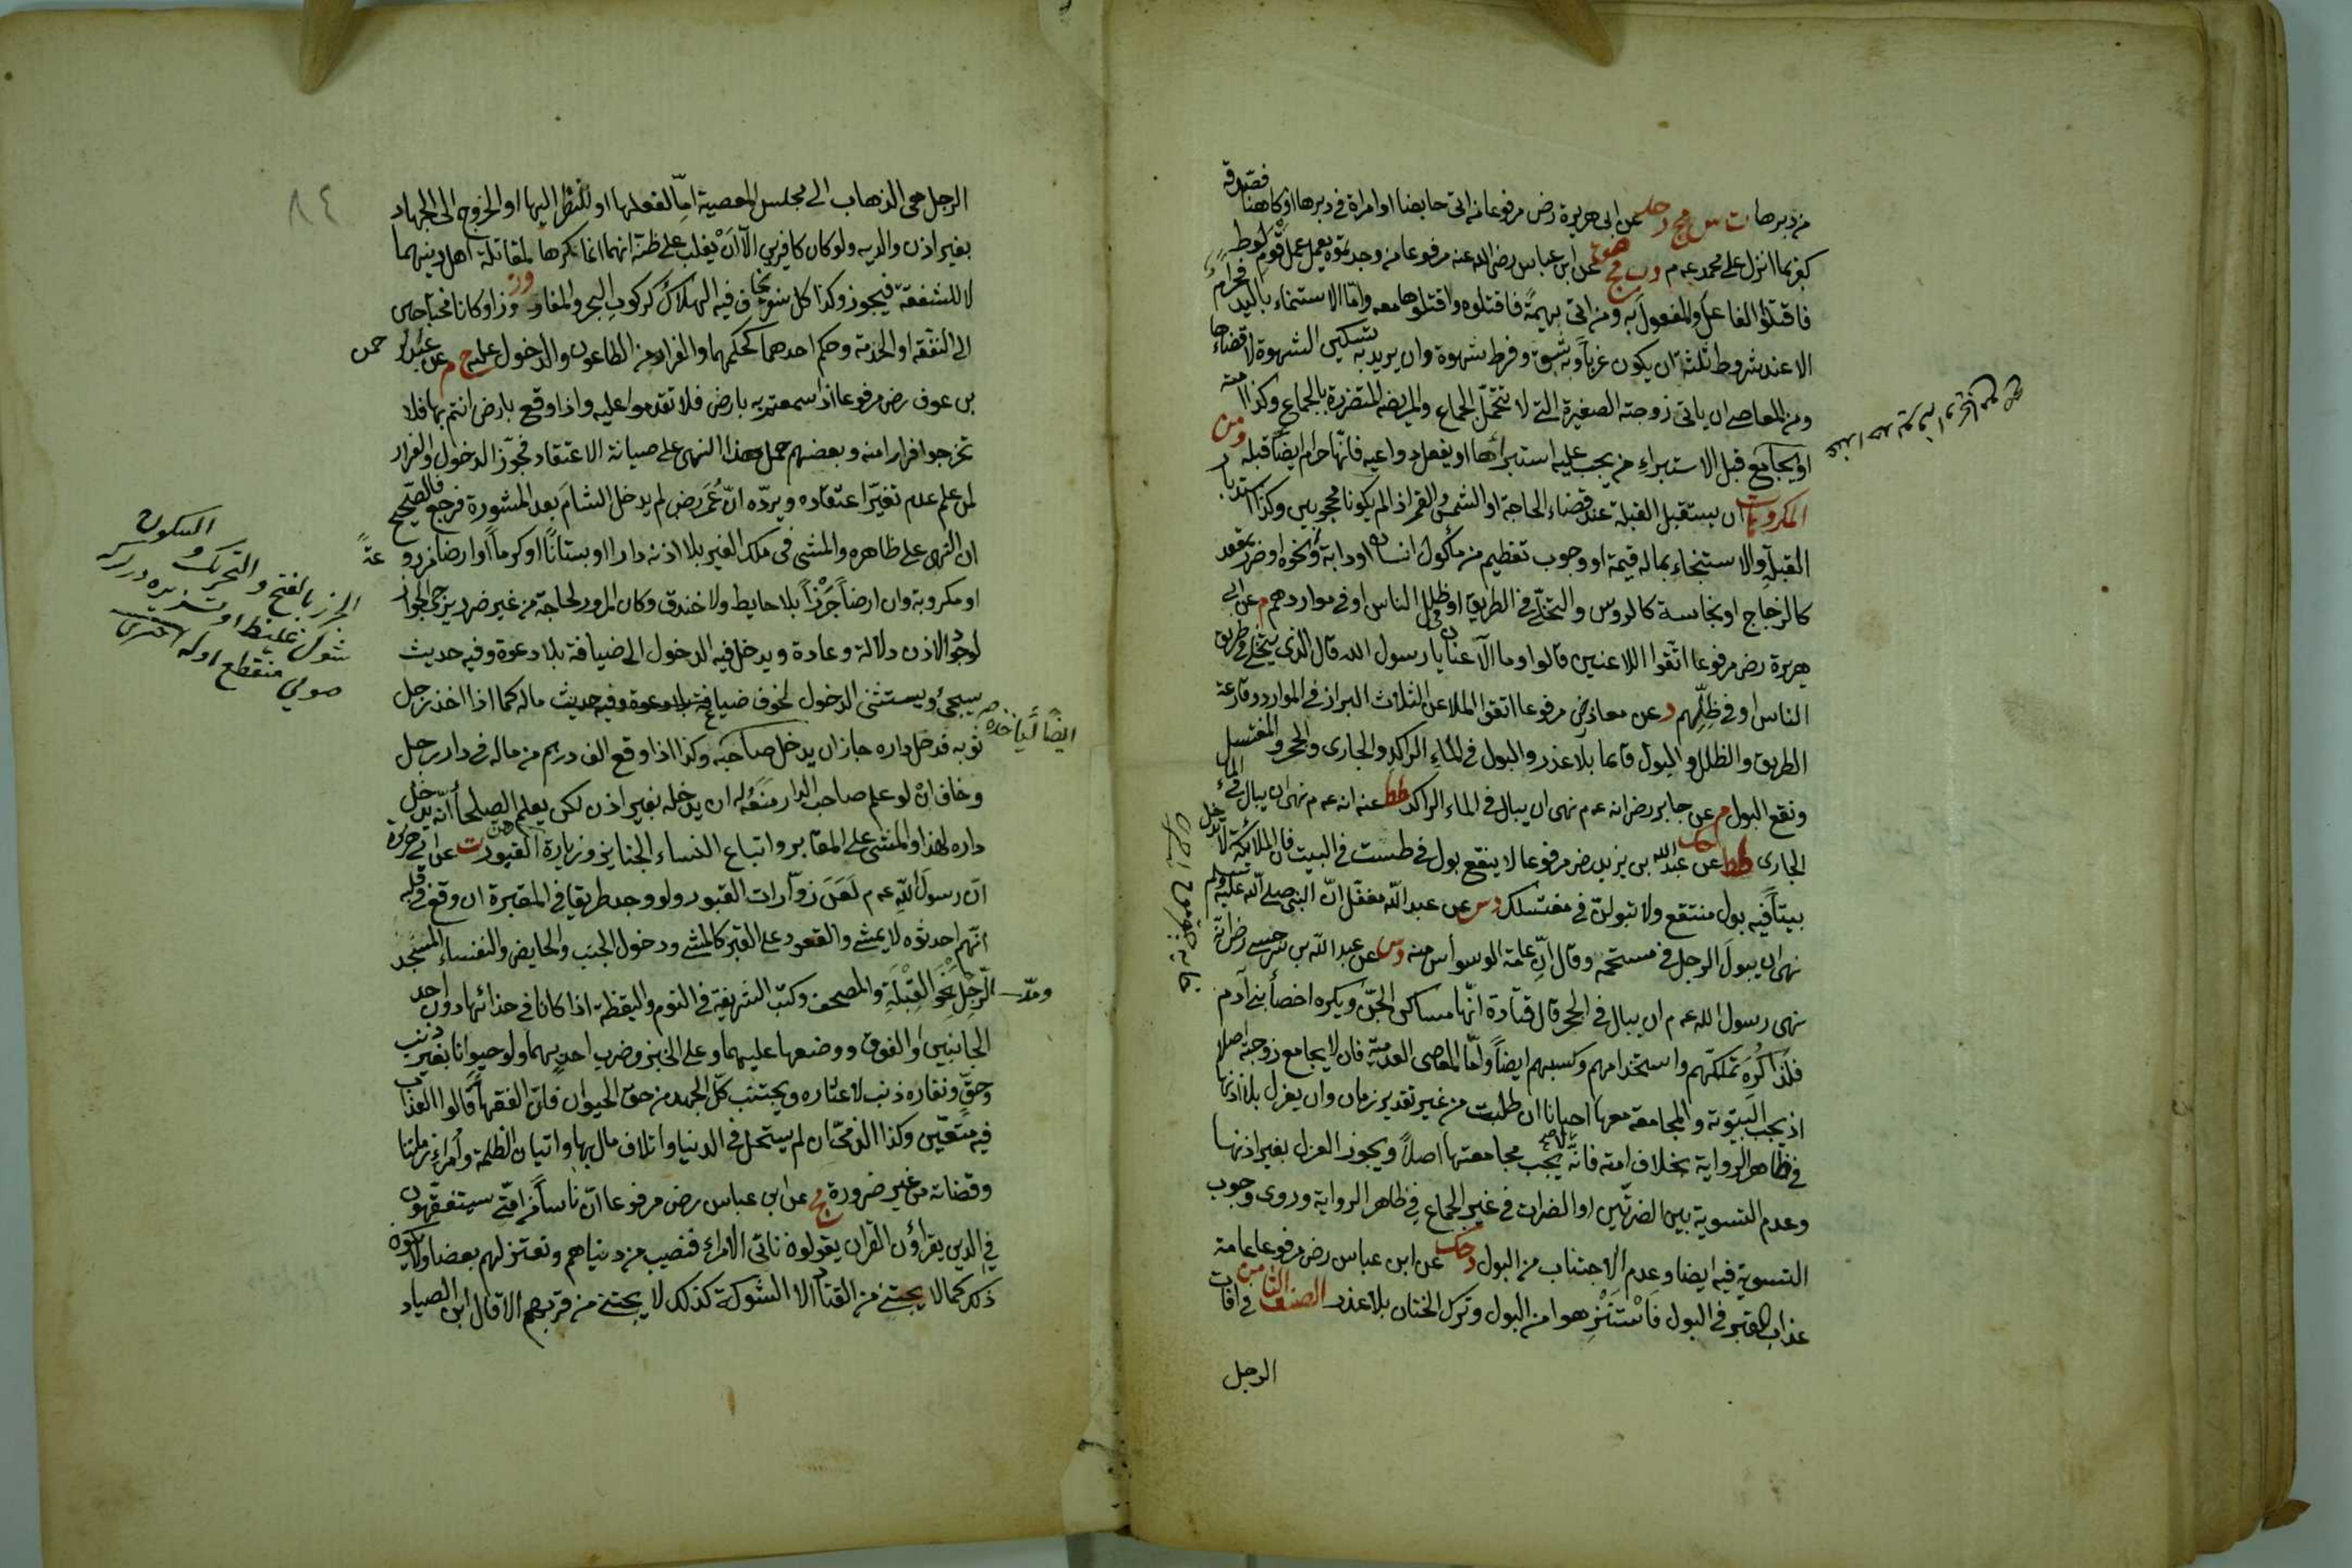 من دبرها ت س مج د حك عن ابى هريرة رض مرفوعا من اتى حايضا او امراة فى دبرها او كاهنا فصدقه
كفر بما انزل على محمد عه م د ت مج هق عن ابن عباس رضى الله عنه مرفوعا من وجدتموه يعمل عمل قوم لوط
فاقتلوا الفاعل والمفعول به ومن اتى بهيمة فاقتلوه واقتلوها معه واما الاستمناء باليد فحرام
الا عند شروط ثلثة ان يكون عزبا وبه شبق وفرط شهوة وان يريد به تسكين الشهوة لا قضاءها
ومن المعاصى ان ياتى زوجته الصغيرة التى لا تتحمل الجماع والمريضة المتضررة بالجماع وكذا امته
او يجامع قبل الاستبراء من يجب عليه استبراؤها او يفعل دواعيه فانها حرام ايضا قبله ومن
المكروهات ان يستقبل القبلة عند قضاء الحاجة او الشمس والقمر اذا لم يكونا محجوبين وكذا استدبار
القبلة والاستنجاء بماله قيمة او وجوب تعظيم من مأكول انسان او دابة ونحوه او ضرر بمقعد
كالزجاج او نجاسة كالروس والتخلى فى الطريق او فى ظل الناس او فى مواردهم م عن ابى
هريرة رض مرفوعا اتقوا اللاعنين قالوا وما اللاعنان يا رسول الله قال الذى يتخلى فى طريق
الناس او فى ظلهم د عن معاذ رض مرفوعا اتقوا الملاعن الثلاث البراز فى الموارد وقارعة
الطريق والظل والبول قائما بلا عذر والبول فى الماء الراكد والجارى والحجر والمغتسل
ونقع البول م عن جابر رض انه عه م نهى ان يبال فى الماء الراكد طط عنه انه عه م نهى ان يبال فى الماء
الجارى طط حك عن عبد الله بن يزيد رض مرفوعا لا ينقع بول فى طست فى البيت فان الملائكة لا تدخل
بيتا فيه بول منتقع ولا تبولن فى مغتسلك د س عن عبد الله مغفل ان النبى صلى الله عليه وسلم
نهى ان يبول الرجل فى مستحمه وقال ان عامة الوسواس منه د س عن عبد الله بن سرجس رض انه
نهى رسول الله عه م ان يبال فى الحجر قال قتادة انها مساكن الجن ويكره اخصأ بنى آدم
فلذا كره تملكهم واستخدامهم وكسبهم ايضا واما المعاصى العدمية فان لا يجامع زوجته اصلا
اذ يجب البيتوتة والمجامعة معها احيانا ان طلبت من غير تقدير زمان وان يعزل بلا اذنها
فى ظاهر الرواية بخلاف امته فانه لا يجب مجامعتها اصلا ويجوز العزل بغير اذنها
وعدم التسوية بين الضرتين او الضرات فى غير الجماع فى ظاهر الرواية وروى وجوب
التسوية فيه ايضا وعدم الاجتناب من البول د حك عن ابن عباس رض مرفوعا عامة
عذاب القبر فى البول فاستنزهوا من البول وترك الختان بلا عذر الصنف الثامن فى افات
الرجل
٨٤
الرجل هى الذهاب الى مجلس المعصية اما لفعلها او للنظر اليها او الخروج الى الجهاد
بغير اذن والديه ولو كان كافرين الا ان يغلب على ظنه انهما انما يكرها لمقاتلة اهل دينهما
لا للشفقة فيجوز وكذا كل سفر يخاف فيه الهلاك كركوب البحر والمفاوز او كانا محتاجين
الى النفقة او الخدمة وحكم احدهما كحكمهما والفرار من الطاعون والدخول عليه خ م عن عبد الرحمن
بن عوف رض مرفوعا اذا سمعتم به بارض فلا تقدموا عليه واذا وقع بارض انتم بها فلا
تخرجوا فرارا منه وبعضهم حمل هذا النهى على صيانة الاعتقاد فجوز الدخول والفرار
لمن علم عدم تغير اعتقاده ويرده ان عمر رض لم يدخل الشام بعد المشورة فرجع فالصحيح
ان النهى على ظاهره والمشى فى ملك الغير بلا اذنه دارا او بستانا او كرما او ارضا مزروعة
او مكروبة وان ارضا جرزا بلا حايط ولا خندق وكان المرور لحاجة من غير ضرر يرجى الجواز
لوجود الاذن دلالة وعادة ويدخل فيه الدخول الى ضيافة بلا دعوة وفيه حديث
سيجئ ويستثنى الدخول لخوف ضياع ماله كما اذا اخذ رجل
ثوبه فدخل داره جاز ان يدخل صاحبه وكذا اذا وقع الف درهم من ماله فى دار رجل
وخاف ان لو علم صاحب الدار منعه له ان يدخله بغير اذن لكن يعلم الصلحأ انه يدخل
داره لهذا والمشى على المقابر واتباع النساء الجنايز وزيارة القبور ت عن ابى هريرة
ان رسول الله عه م لعن زوارات القبور ولو وجد طريقا فى المقبرة ان وقع فى قلبه
انهم احدثوه لا يمشى والقعود على القبر كالمشى ودخول الجنب والحايض والنفساء المسجد
ومد الرجل نحو القبلة والمصحف وكتب الشريعة فى النوم واليقظة اذا كانا فى حذائها دون احد
الجانبين او الفوق ووضعها عليهما وعلى الخبز وضرب احد بهما ولو حيوانا بغير ذنب
وحق ونقاره ذنب لا عثاره ويجتنب كل الجهد من حق الحيوان فان الفقهأ قالوا العذاب
فيه متعين وكذا الذمى ان لم يستحل فى الدنيا واتلاف مال بها واتيان الظلمة وامراء زماننا
وقضاته من غير ضرورة مج عن ابن عباس رض مرفوعا ان ناسا من امتى سيتفقهون
فى الدين يقرأون القران يقولون ناتى الامراء فنصيب من دنياهم ونعتزلهم بعضا ولا يكون
ذلك كما لا يجتنى من القتاد الا الشوك كذلك لا يجتنى من قربهم الا قال ابن الصياد
ايضا لياخذه
الجرز بالفتح والتحريك والسكون